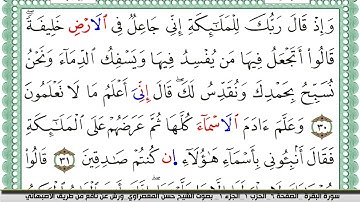 وَإِذْ قَالَ رَبُّكَ لِلْمَلَٰٓئِكَةِ إِنِّي جَاعِلٌ فِي اِ۬لَارْضِ خَلِيفَةٗۖ
قَالُوٓاْ أَتَجْعَلُ فِيهَا مَنْ يُّفْسِدُ فِيهَا وَيَسْفِكُ اُ۬لدِّمَآءَ وَنَحْنُ
نُسَبِّحُ بِحَمْدِكَ وَنُقَدِّسُ لَكَۖ قَالَ إِنِّيَ أَعْلَمُ مَا لَا تَعْلَمُونَ
٣٠ وَعَلَّمَ ءَادَمَ اَ۬لَاسْمَآءَ كُلَّهَا ثُمَّ عَرَضَهُمْ عَلَى اَ۬لْمَلَٰٓئِكَةِ
فَقَالَ أَنۢبِـُٔونِي بِأَسْمَآءِ هَٰٓؤُلَآءِ ان كُنتُمْ صَٰدِقِينَ ٣١ قَالُواْ
سورة البقرة الصفحة ٦ الحزب ١ الجزء ١ بصوت الشيخ حسن المعصراوي ورش عن نافع من طريق الأصبهاني